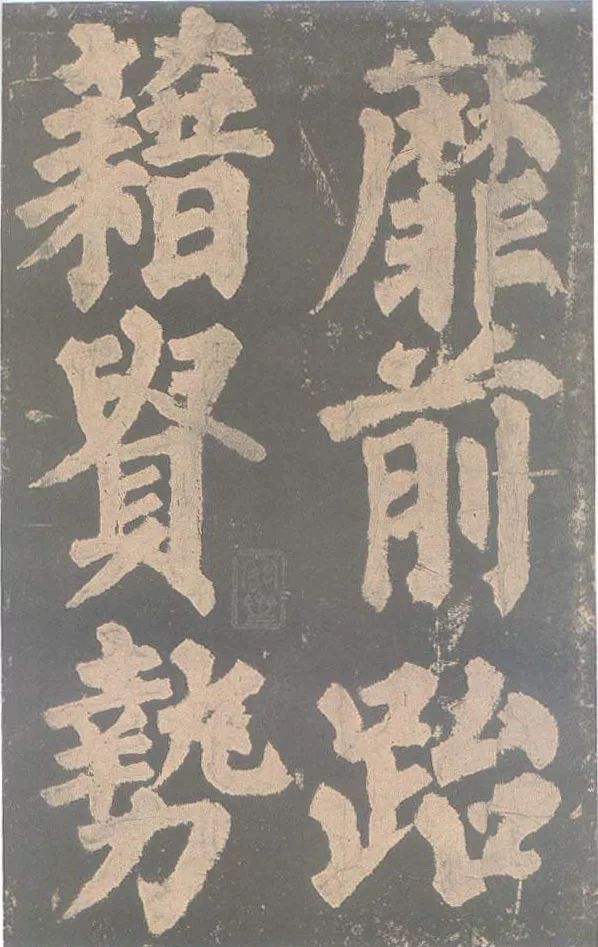 靡前跆
籍貴勢